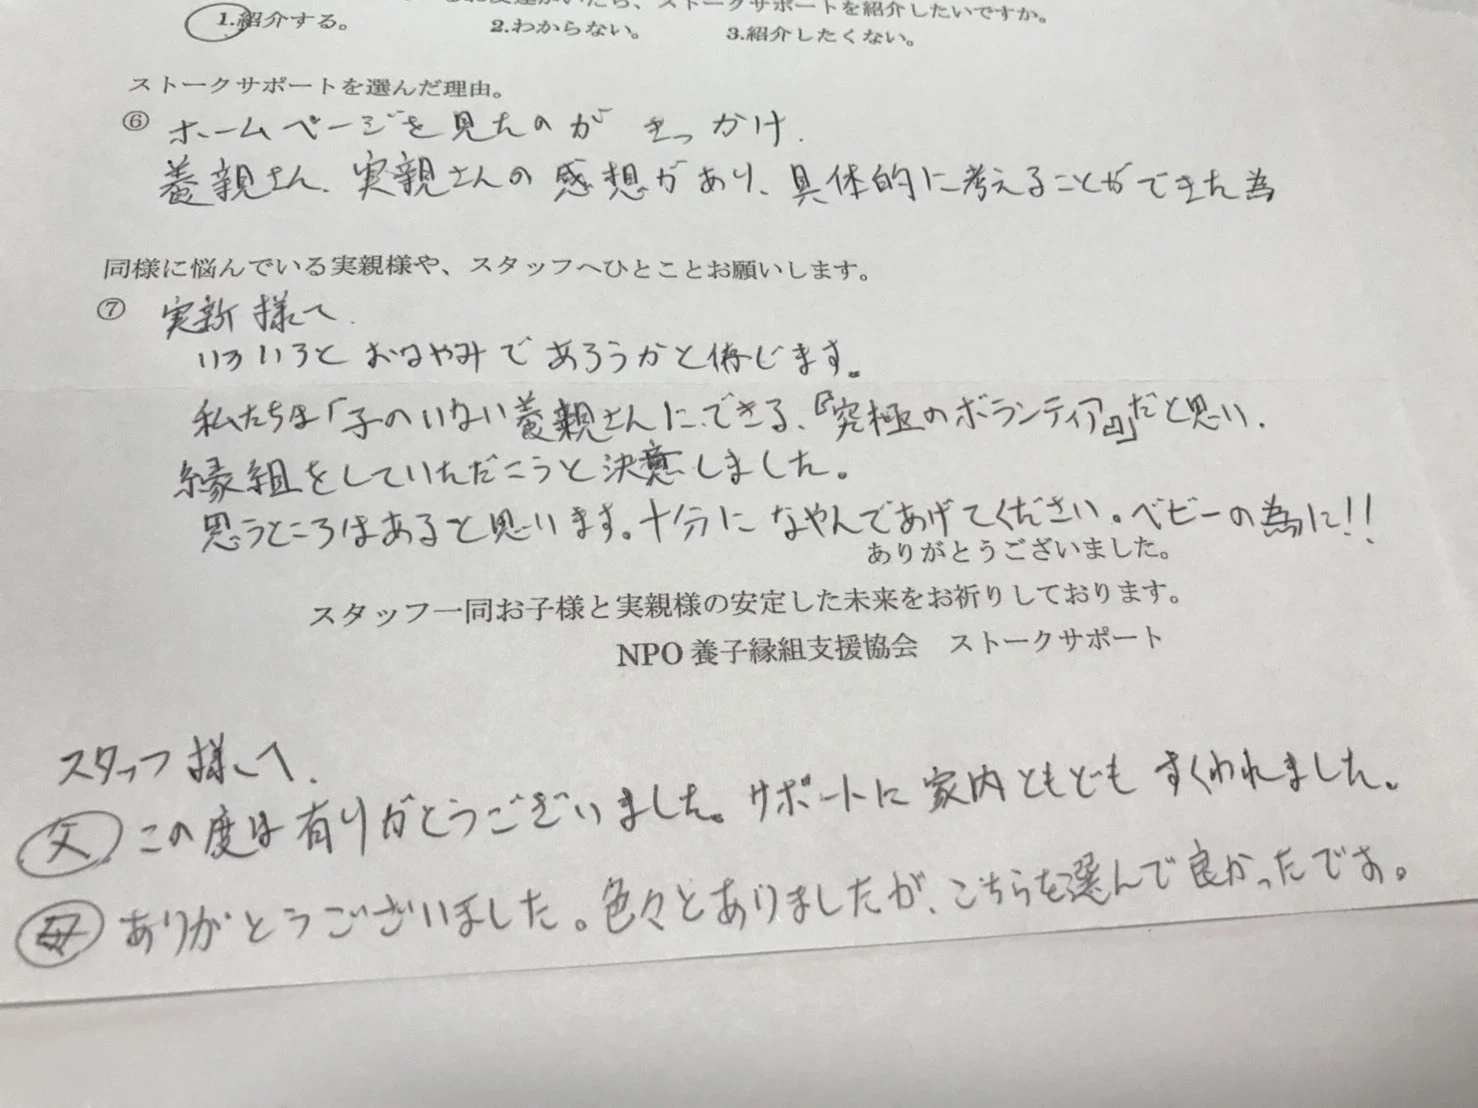 お友達がいたら、ストークサポートを紹介したいですか。
1.紹介する。 2.わからない。 3.紹介したくない。
ストークサポートを選んだ理由。
⑥ ホームページを見たのが きっかけ.
養親さん、実親さんの感想があり、具体的に考えることができた為
同様に悩んでいる実親様や、スタッフへひとことお願いします。
⑦ 実新様へ.
いろいろと おなやみで あろうかと存じます。
私たちは「子のいない養親さんにできる、『究極のボランティア』」だと思い.
縁組をしていただこうと決意しました。
思うところはあると思います。十分に なやんであげてください。ベビーの為に!!
ありがとうございました。
スタッフ一同お子様と実親様の安定した未来をお祈りしております。
NPO 養子縁組支援協会 ストークサポート
スタッフ様へ.
父 この度は有りがとうございました。サポートに家内ともども すくわれました。
母 ありがとうございました。色々とありましたが、こちらを選んで良かったです。